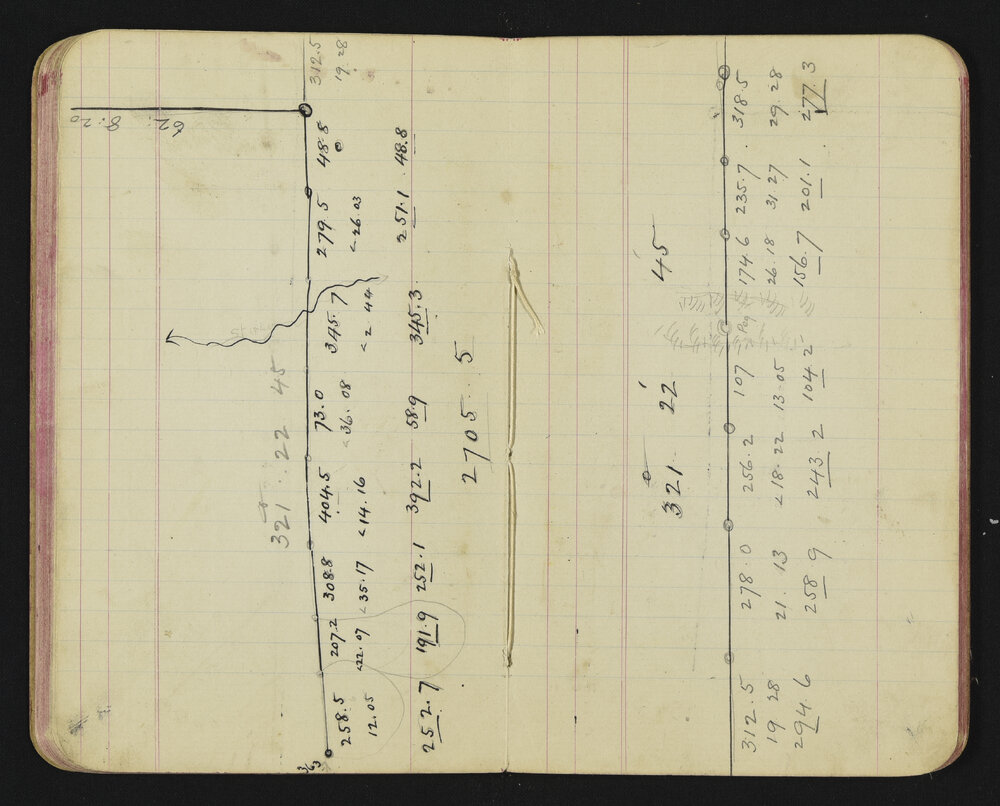 62. 8.20
321° .22 45
363
258.5 207.2 308.8 404.5 73.0 345.7 279.5 48.8 312.5
12.05 <22.07 <35.17 <14.16 <36.08 <2 44 <26.03 0 19.28
252.7 191.9 252.1 392.2 58.9 345.3 251.1 48.8
2705.5
321° 22' 45'
312.5 278.0 256.2 107 Peg 174.6 235.7 318.5
19 28 21.13 <18.22 13.05 26.18 31 27 29.28
294.6 258.9 243.2 104.2 156.7 201.1 277.3